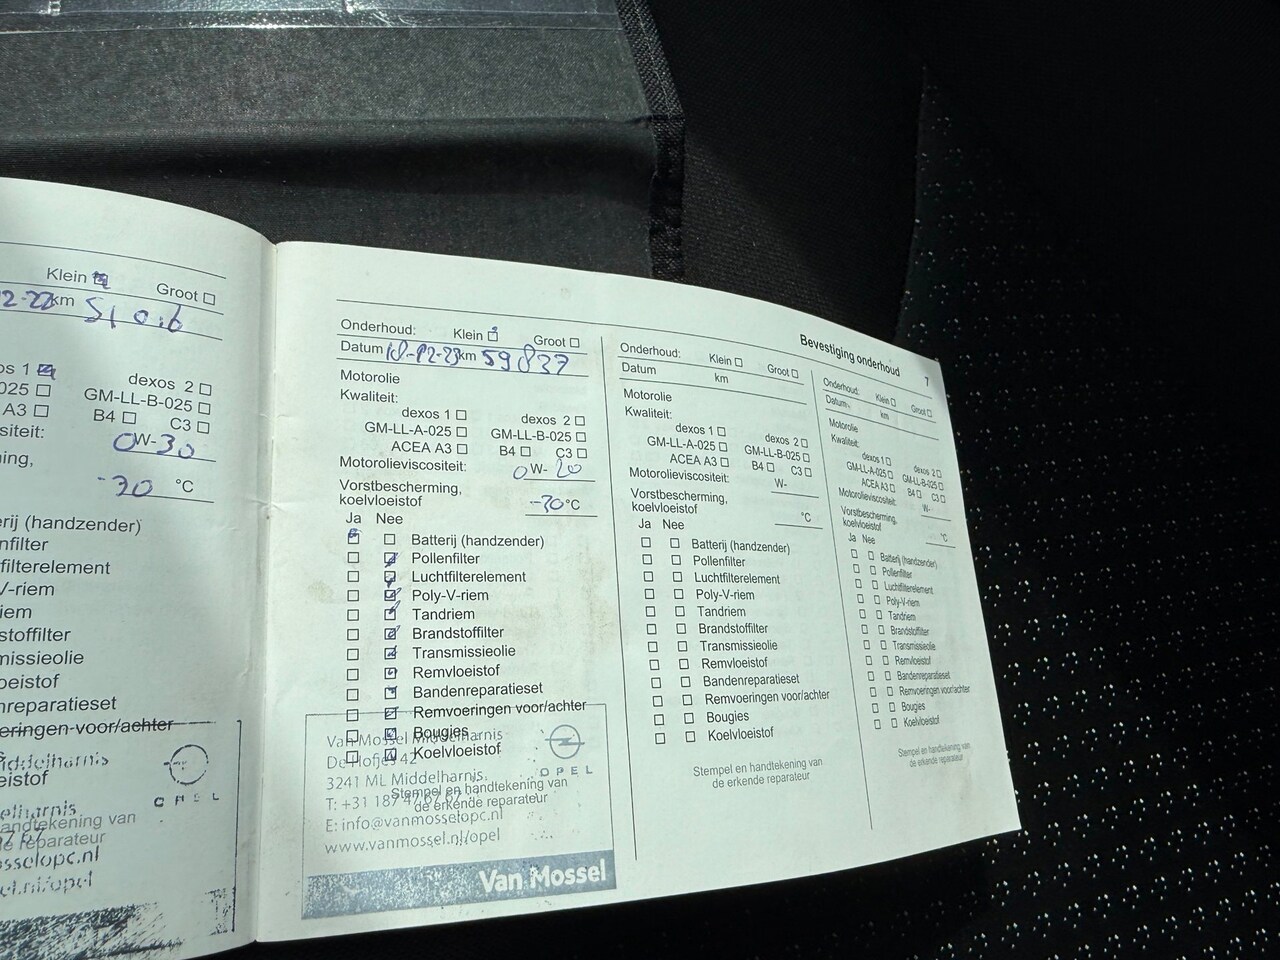 Klein
Groot
2-22 km 51016
dexos 2
025
GM-LL-B-025
A3
B4
C3
siteit:
0W-30
ing,
-30 °C
erij (handzender)
nfilter
filterelement
V-riem
iem
stoffilter
missieolie
oeistof
nreparatieset
eringen voor/achter
iddelharnis
eistof
OPEL
elharnis
andtekening van
e reparateur
sselopc.nl
el.nl/opel
Onderhoud: Klein Groot
Datum 18-12-23 km 59837
Motorolie
Kwaliteit:
dexos 1 dexos 2
GM-LL-A-025 GM-LL-B-025
ACEA A3 B4 C3
Motorolieviscositeit: 0W-20
Vorstbescherming,
koelvloeistof -30 °C
Ja Nee
Batterij (handzender)
Pollenfilter
Luchtfilterelement
Poly-V-riem
Tandriem
Brandstoffilter
Transmissieolie
Remvloeistof
Bandenreparatieset
Remvoeringen voor/achter
Bougies
Koelvloeistof
Stempel en handtekening van
de erkende reparateur
Van Mossel Middelharnis
De Hofjes 42
3241 ML Middelharnis
T: +31 187
E: info@vanmosselopc.nl
www.vanmossel.nl/opel
OPEL
Van Mossel
Bevestiging onderhoud 7
Onderhoud: Klein Groot
Datum km
Motorolie
Kwaliteit:
dexos 1 dexos 2
GM-LL-A-025 GM-LL-B-025
ACEA A3 B4 C3
Motorolieviscositeit: W-
Vorstbescherming,
koelvloeistof °C
Ja Nee
Batterij (handzender)
Pollenfilter
Luchtfilterelement
Poly-V-riem
Tandriem
Brandstoffilter
Transmissieolie
Remvloeistof
Bandenreparatieset
Remvoeringen voor/achter
Bougies
Koelvloeistof
Stempel en handtekening van
de erkende reparateur
Onderhoud: Klein Groot
Datum km
Motorolie
Kwaliteit:
dexos 1 dexos 2
GM-LL-A-025 GM-LL-B-025
ACEA A3 B4 C3
Motorolieviscositeit: W-
Vorstbescherming,
koelvloeistof °C
Ja Nee
Batterij (handzender)
Pollenfilter
Luchtfilterelement
Poly-V-riem
Tandriem
Brandstoffilter
Transmissieolie
Remvloeistof
Bandenreparatieset
Remvoeringen voor/achter
Bougies
Koelvloeistof
Stempel en handtekening van
de erkende reparateur